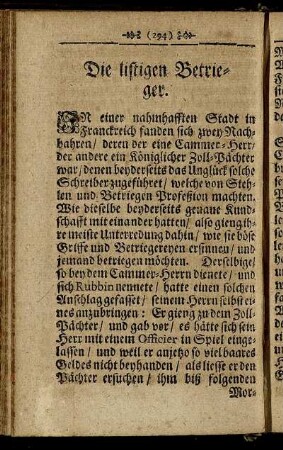 (294)
Die listigen Betrie-
ger.
IN einer nahmhafften Stadt in
Franckreich fanden sich zwey Nach-
bahren / deren der eine Cammer-Herr /
der andere ein Königlicher Zoll-Pächter
war / denen beyderseits das Unglück solche
Schreiber zugeführet / welche von Steh-
len und Betriegen Profession machten.
Wie dieselbe beyderseits genaue Kund-
schafft mit einander hatten / also gieng ih-
re meiste Unterredung dahin / wie sie böse
Griffe und Betriegereyen ersinnen / und
jemand betriegen möchten. Derselbige /
so bey dem Cammer-Herrn dienete / und
sich Rubbin nennete / hatte einen solchen
Anschlag gefasset / seinem Herrn selbst ei-
nes anzubringen: Er gieng zu dem Zoll-
Pächter / und gab vor / es hätte sich sein
Herr mit einem Officier in Spiel einge-
lassen / und weil er anjetzo so viel baares
Geldes nicht beyhanden / als liesse er den
Pächter ersuchen / ihm biß folgenden
Mor-